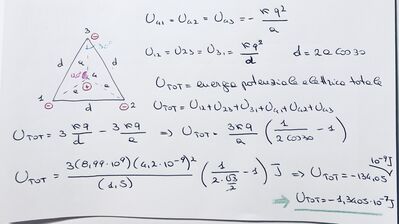 U_a1 = U_a2 = U_a3 = - kq²/a
U_12 = U_23 = U_31 = kq²/d   d = 2a cos30
U_TOT = energia potenziale elettrica totale
U_TOT = U_12 + U_23 + U_31 + U_a1 + U_a2 + U_a3
U_TOT = 3 kq/d - 3 kq/a ⇒ U_TOT = 3kq/a (1/2cos30 - 1)
U_TOT = 3(8,99·10⁹)(4,2·10⁻⁹)²/(1,5) (1/(2·√3/2) - 1) J ⇒ U_TOT = -134,05 10⁻⁹J
U_TOT = -1,3405·10⁻⁷J
3
d a d
a a
1 d 2